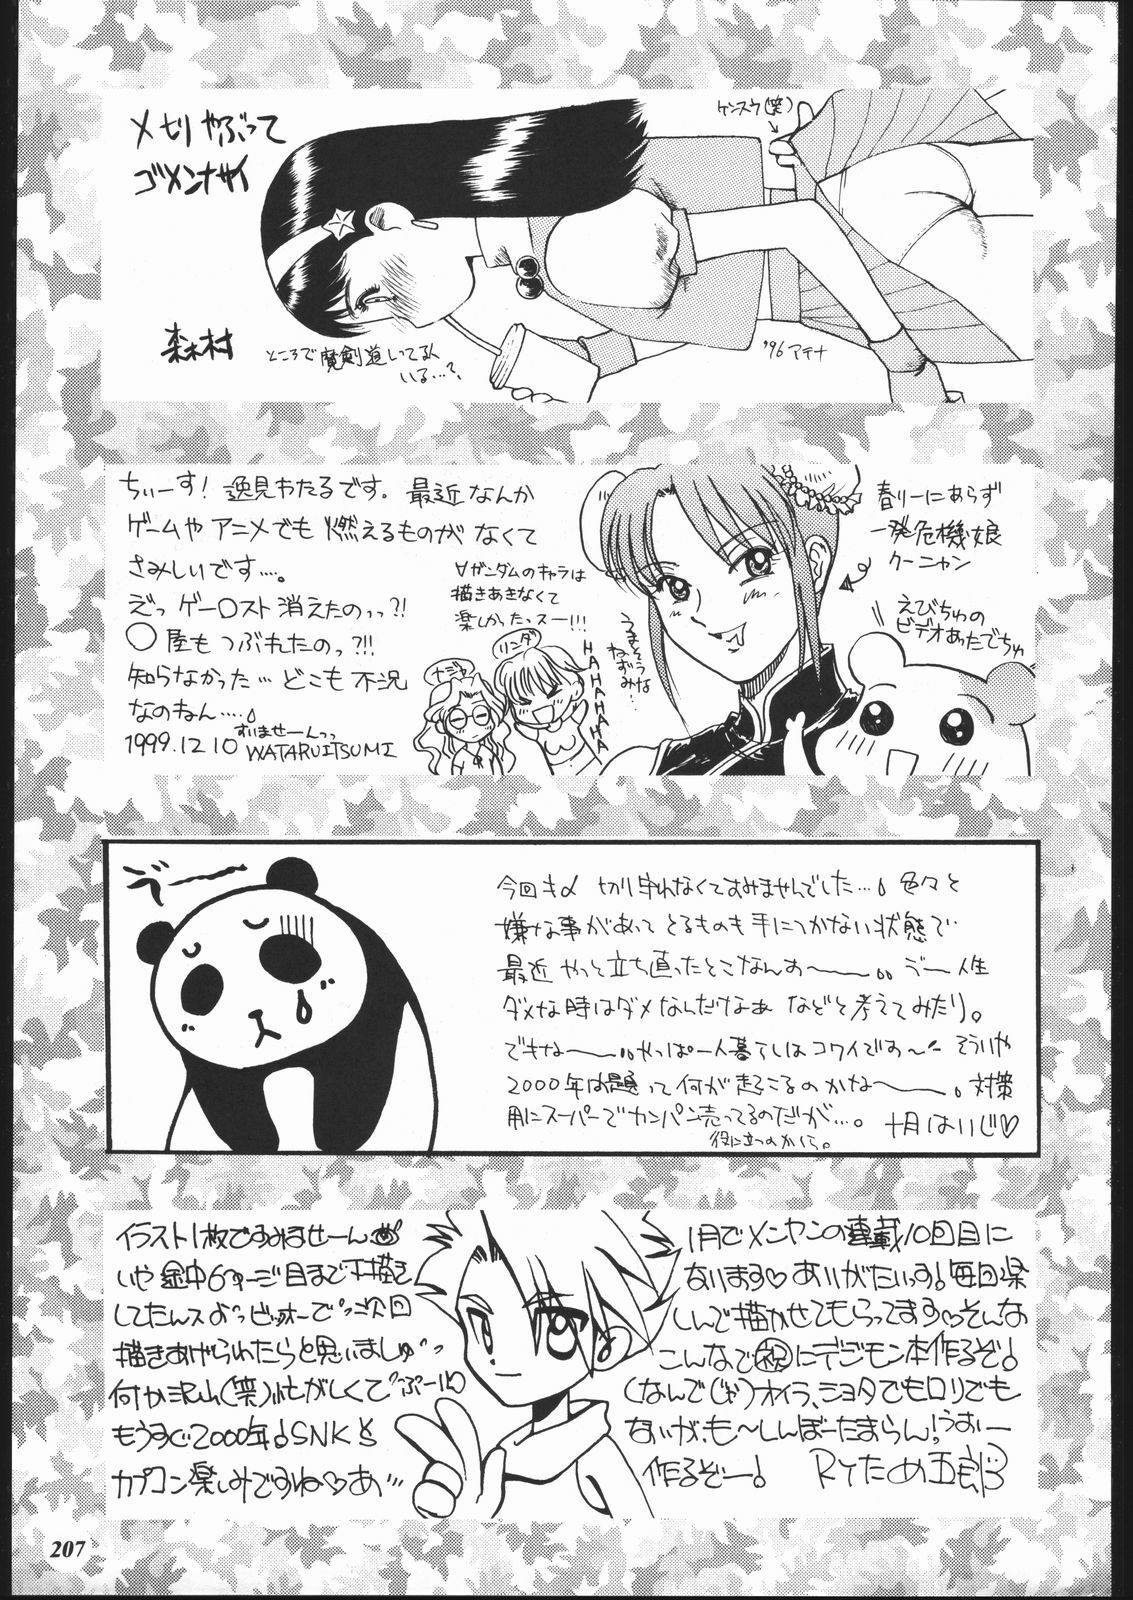 メ切りやぶって
ゴメンナサイ
森村
ケンスウ(笑)
ところで魔剣道しってる人
いる…?
'96 アテナ
ちぃーす! 逸見わたるです。最近なんか
ゲームや アニメでも 燃えるものが なくて
さみしいです….
えっ ゲー○スト 消えたのっっ?!
○屋も つぶれたの っ?!!
知らなかった… どこも 不況
なのねん….
すいませーんっっ
1999.12.10 WATARU ITSUMI
∀ガンダムのキャラは
描きあきなくて
楽しかったっスー!!!
リンダ
HAHAHAHAHA
うまそうな
ねずみ…!
春リーにあらず
一発危機娘
クーニャン
えびちゅの
ビデオあったでちゅ
ゔーー
今回も〆 切り守れなくてすみませんでした…。色々と
嫌な事があって とるものも手につかない状態で…
最近 やっと立ち直ったとこなんすーー。。ゔー人生
ダメな時はダメなんだけなぁ などと考えてみたり。
できなーー。。やっぱ一人暮らしはコワイですぉ〜 そういや
2000年問題って何が起こるのかなーー。対策
用にスーパーでカンパン売ってるのだが…。 十月はいじ♡
役に立つのかして。
イラスト1枚ですみませーん
いや 途中6ページ目まで下描き
してたんスよっ ビッグオーで 次回
描きあげられたらと思いましゅ
何か沢山(笑)忙がしくて ぷーり
もうすぐ2000年 SNKと
カプコン楽しみですね♡あ…
1月でメンヤンの連載10回目に
なります♡ありがたいっす! 毎回楽
しんで描かせてもらってます♡そんな
こんなで㊗にデジモン本作るぞ!
(なんでじゃ)オイラ、ショタでもロリでも
ないが、も〜しんぼーたまらん!うぉー
作るぞー! RYため五郎
207